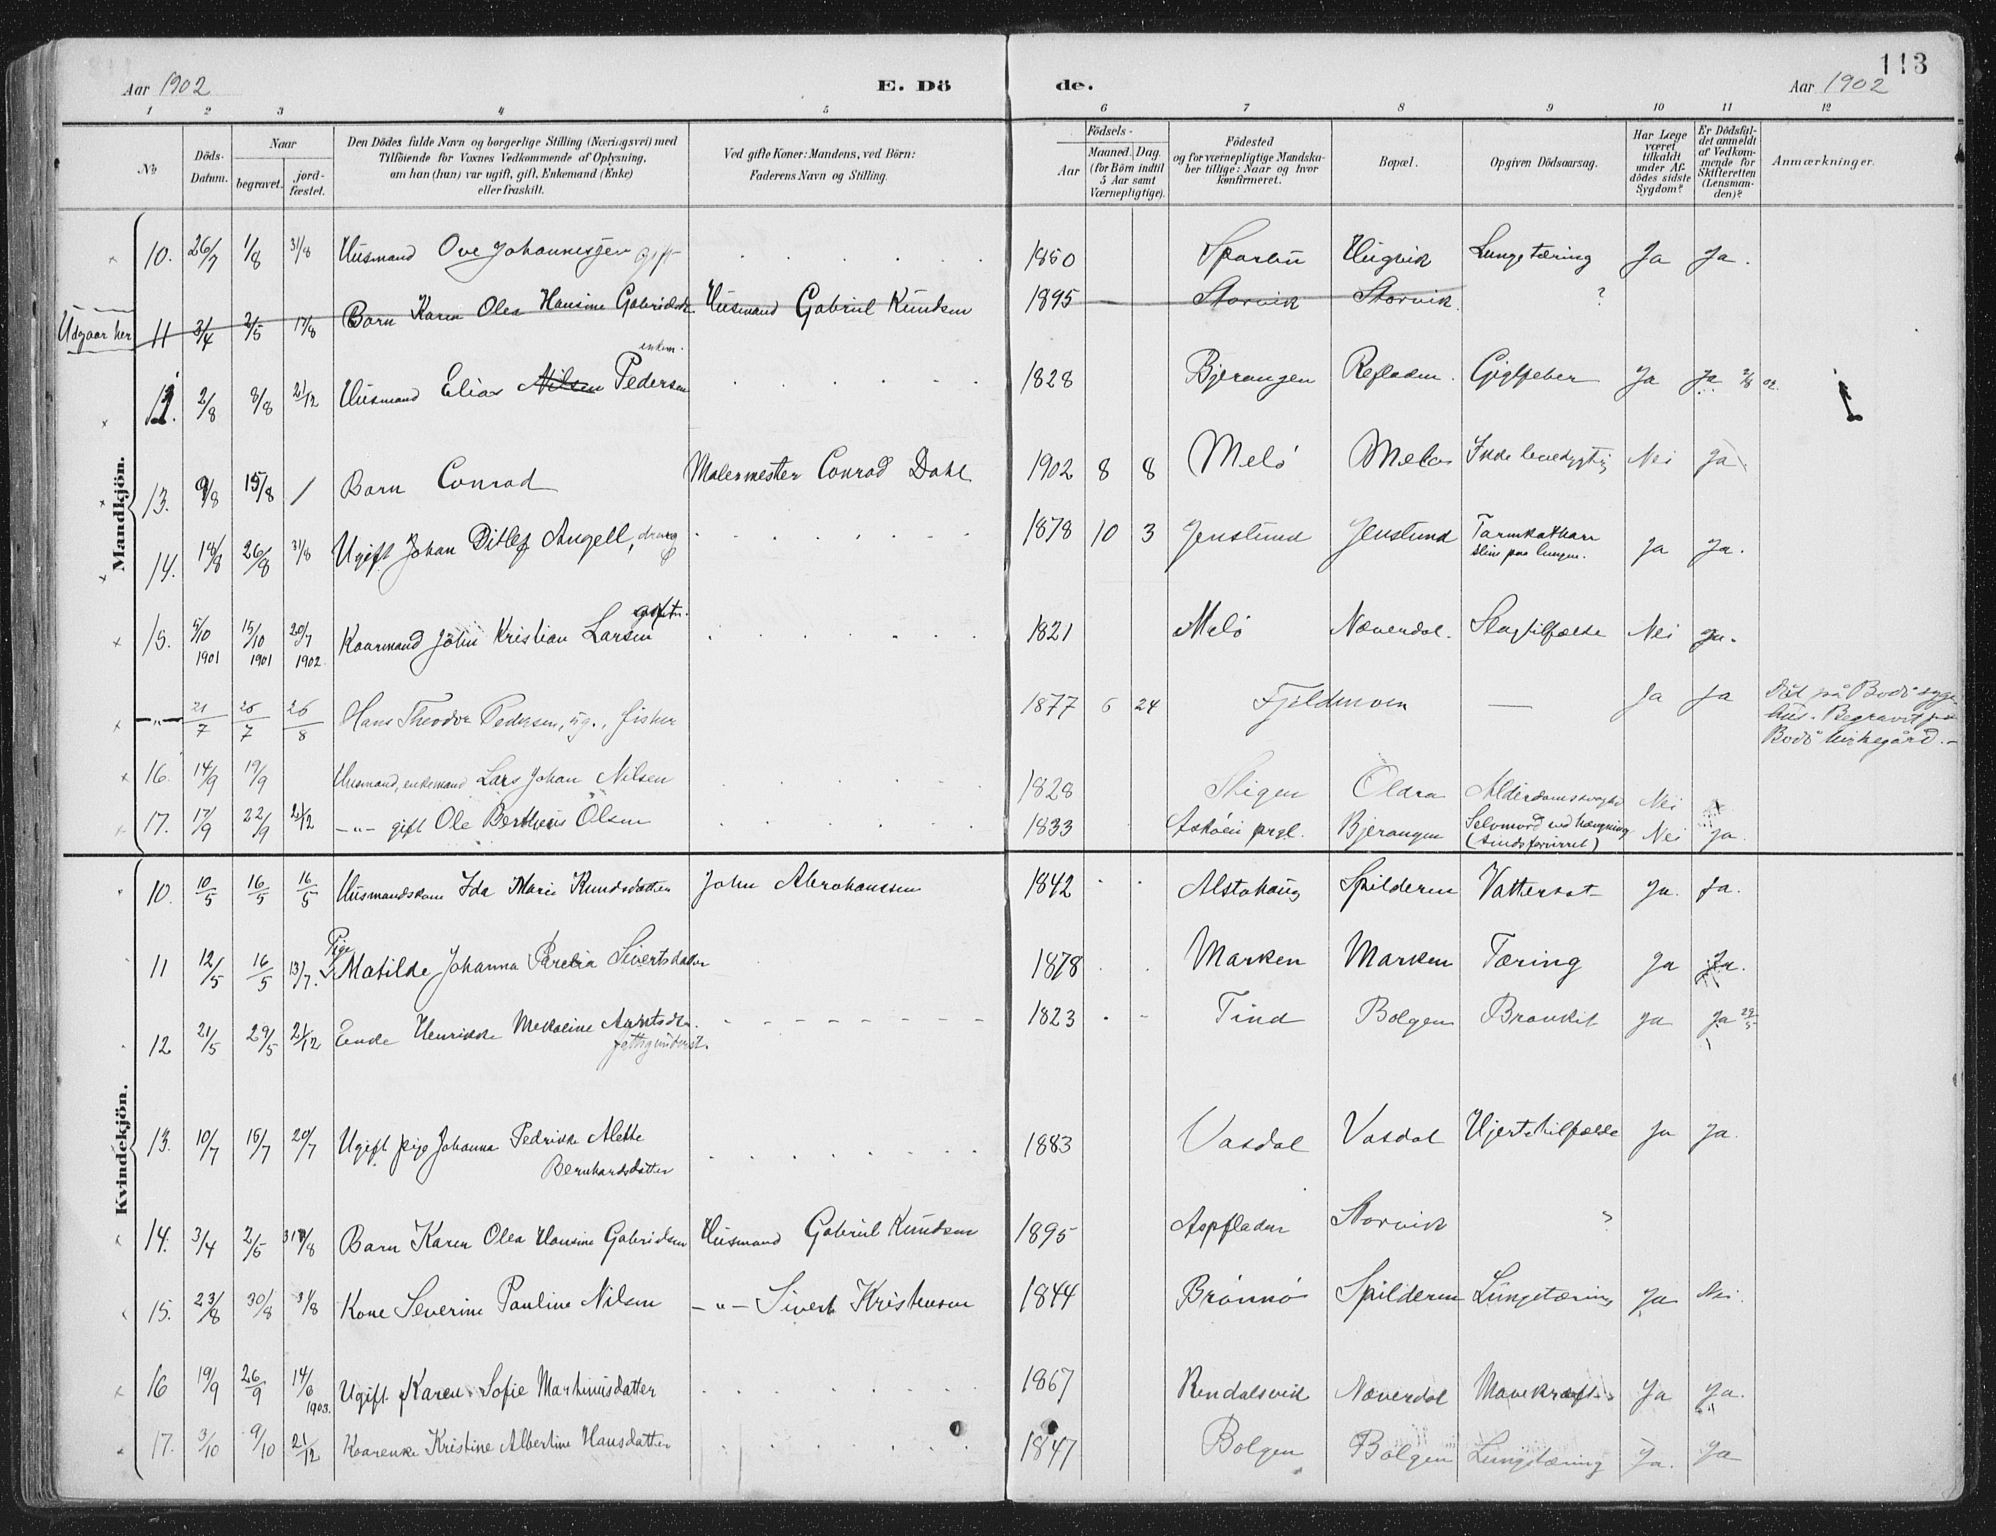 113
Aar 1902 E. Dö de. Aar 1902
1 2 3 4 5 6 7 8 9 10 11 12
No
Döds-Datum.
Naar
begravet.
jord-fæstet.
Den Dödes fulde Navn og borgerlige Stilling (Næringsvei) med
Tilföiende for Voxnes Vedkommende af Oplysning,
om han (hun) var ugift, gift, Enkemand (Enke)
eller fraskilt.
Ved gifte Koner: Mandens, ved Börn:
Faderens Navn og Stilling.
Födsels-
Aar
Maaned. Dag.
(for Börn indtil
5 Aar samt
Værnepligtige).
Födested
og for værnepligtige Mandska-
ber tillige: Naar og hvor
konfirmeret.
Bopæl.
Opgiven Dödsaarsag.
Har Læge
været
tilkaldt
under Af-
dödes sidste
Sygdom?
Er Dödsfal-
det anmeldt
af Vedkom-
mende for
Skifteretten
(Lensman-
den)?
Anmærkninger.
Mandkjön.
10. 26/7 1/8 31/8 Husmand Ove Johannesen gift 1850 Sparbu Hugvik Lungetæring Ja Ja.
Udgaar her 11 3/4 2/5 17/8 Barn Karen Olea Hansine Gabrielsd. Husmand Gabriel Knudsen 1895 Storvik Storvik ?
12. 2/8 8/8 21/12 Husmand Elias Nilsen Pedersen enkem. 1828 Bjerangen Refladen. Gigtfeber Ja Ja 2/8 02.
13. 9/8 15/8 / Barn Conrad Malermester Conrad Dahl 1902 8 8 Melö Melö Ikke levedygtig Nei Ja
14. 18/8 26/8 31/8 Ugift Johan Ditlef Angell, dreng 1878 10 3 Jenslund Jenslund Tarmkatharr
slim paa lungen. Ja Ja.
15. 5/10 1901 15/10 1901 20/7 1902. Kaarmand John Kristian Larsen 1821 Melö Næverdal. Slagtilfælde Nei Ja.
-"- 21/7 25/7 26/8 Hans Theodor Pedersen, ug., fisker 1877 6 24 Fjeldmoen — Ja Ja Död på Bodö syge-
hus. Begravet på
Bodö kirkegård.-
16. 14/9 19/9 Husmand, enkemand Lars Johan Nilsen 1828 Skigen Oldra Alderdomssvaghed Nei
17. 17/9 22/9 21/12 -"- gift Ole Bertheus Olsen 1833 prgl. Bjerangen Selvmord ved hængning
(sindsforvirret) Nei Ja.
Kvindekjön.
10. 10/5 16/5 16/5 Husmandskone Ida Marie Knudsdatter John Abrahamsen 1842 Alstahaug Spilderen Vattersot Ja. Ja.
11 12/5 16/5 13/7. Pige Matilde Johanna Parelia Sivertsdatter 1878 Marken Marken Tæring Ja Ja.
12 21/5 29/5 21/12 Enke Henrikke Mekaline Arntsdtr.
fattigunderst. 1823 Tind Bolgen Bronkit Ja Ja 29/5
13. 10/7 15/7 20/7 Ugift pige Johanna Pedrikke Alette
Bernhardsdatter 1883 Vasdal Vasdal Hjertetilfælde Ja Ja.
14. 3/4 2/5 31/8 Barn Karen Olea Hansine Gabrielsen Husmand Gabriel Knudsen 1895 Aspfladen Storvik ?
15. 23/8 30/8 31/8 Kone Severine Pauline Nilsen -"- Sivert Kristensen 1844 Brönnö Spilderen Lungetæring Ja Nei.
16 19/9 26/9 14/6 1903. Ugift Karen Sofie Martinusdatter 1867 Rendalsvik Næverdal Mavekræft Ja Ja.
17. 3/10 9/10 21/12 Kaarenke Kristine Albertine Hansdatter 1847 Bolgen Bolgen Lungetæring Ja. Ja